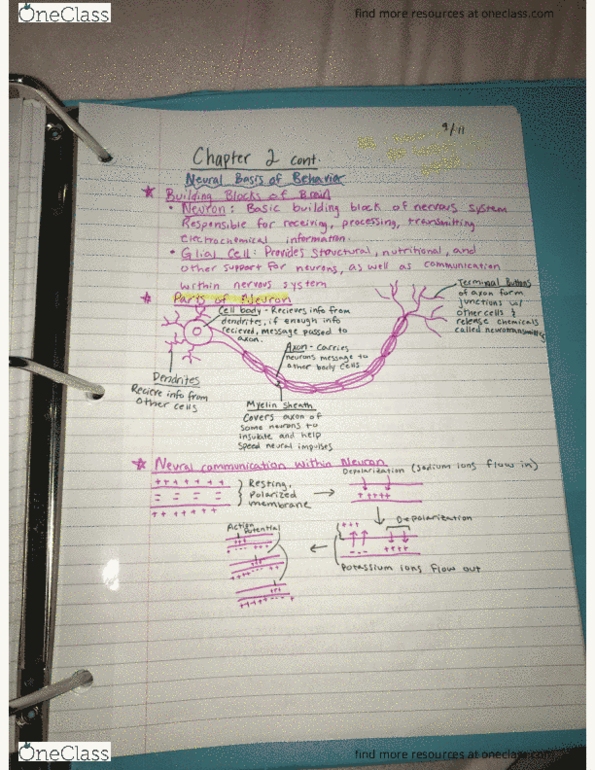 OneClass
find more resources at oneclass.com
9/11
Chapter 2 cont.
Neural Basis of Behavior
Building Blocks of Brain
• Neuron: Basic building block of nervous system
Responsible for receiving, processing, transmitting
electrochemical information.
• Glial Cell: Provides structural, nutritional, and
other support for neurons, as well as communication
within nervous system
Parts of Neuron
Cell body - Recieves info from
dendrites, if enough info
recieved, message passed to
axon.
Terminal Buttons
of axon form
junctions w/
other cells &
release chemicals
called neurotransmitters
Axon - Carries
neurons message to
other body cells
Dendrites
Recieve info from
other cells
Myelin Sheath
Covers axon of
some neurons to
insulate and help
speed neural impulses
Neural communication within Neuron
Depolarization (sodium ions flow in)
+ + + + + + +
Resting,
Polarized
membrane
+ + + + + + +
+ ++++
Depolarization
+++
++++
Potassium ions flow out
Action
Potential
OneClass
find more resources at oneclass.com